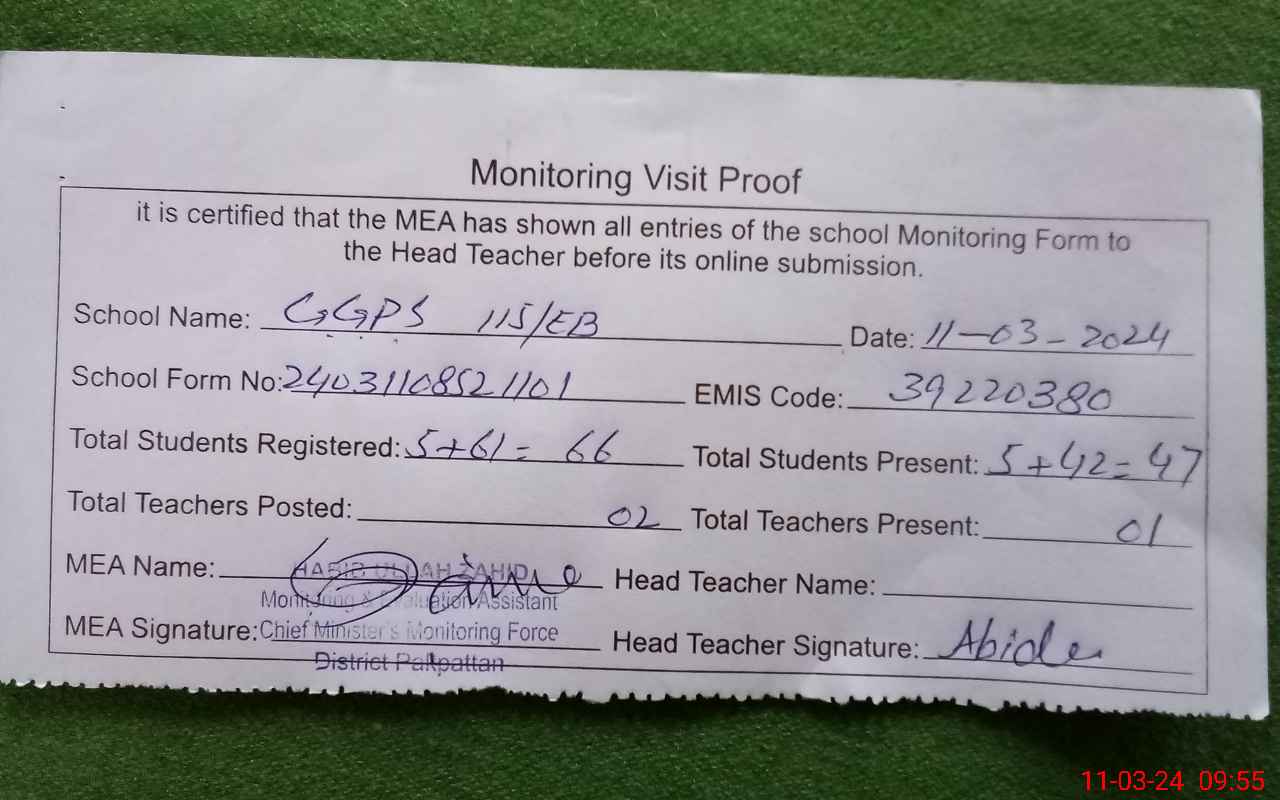 Monitoring Visit Proof
it is certified that the MEA has shown all entries of the school Monitoring Form to
the Head Teacher before its online submission.
School Name: GGPS 115/EB Date: 11-03-2024
School Form No: 24031108521101 EMIS Code: 39220380
Total Students Registered: 5+61= 66 Total Students Present: 5+42=47
Total Teachers Posted: 02 Total Teachers Present: 01
MEA Name: HABIB ULLAH ZAHID Head Teacher Name:
Monitoring & Evaluation Assistant
MEA Signature: Chief Minister's Monitoring Force Head Teacher Signature: Abida
District Pakpattan
11-03-24 09:55